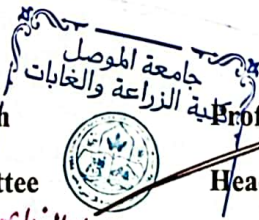 جامعة الموصل
كلية الزراعة والغابات
Prof
ttee
Head